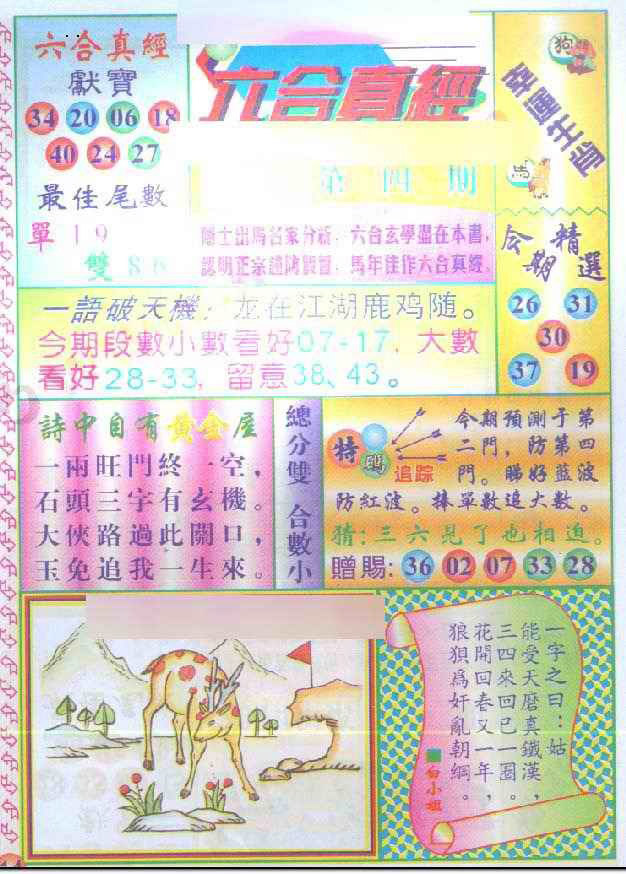 六合真經
獻寶
34 20 06 18
40 24 27
最佳尾數
單 19
雙 86
六合真經
第四期
隱士出馬名家分析，六合玄學盡在本書，
認明正宗
馬年佳作六合真經。
狗
幸運生肖
馬
今期精選
26 31
30
37 19
一語破天機：龙在江湖鹿鸡随。
今期段數小數看好07-17，大數
看好28-33，留意38、43。
詩中自有黃金屋
一兩旺門終一空，
石頭三字有玄機。
大俠路過此關口，
玉兔追我一生來。
總分雙 合數小
特碼追踪
今期預測于第
二門，防第四
門。睇好蓝波
防紅波。捧單數追大數。
猜：三六見了也相迫。
贈賜：36 02 07 33 28
一字之曰：姑
能受天磨真鐵漢，
三四來回已一圈。
花開回春又一年，
狼狽爲奸亂朝綱。
白小姐